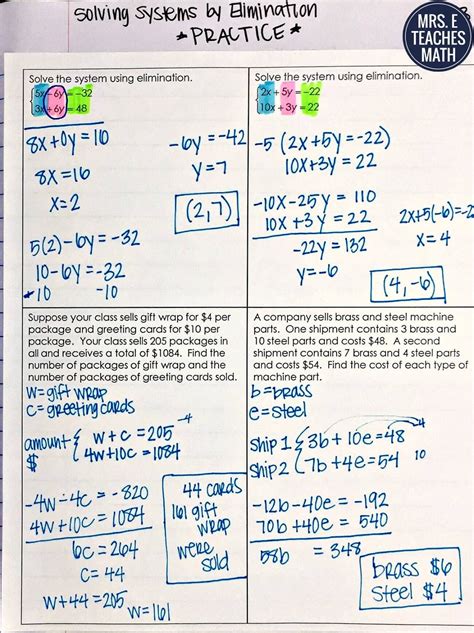 Solving Systems by Elimination
*PRACTICE*
MRS. E
TEACHES
MATH
Solve the system using elimination.
5y − 6y = −32
3x + 6y = 48
8x + 0y = 16
8x = 16
x = 2
-6y = -42
y = 7
(2,7)
5(2) - 6y = -32
10 - 6y = -32
-10 -10
Solve the system using elimination.
2x + 5y = −22
10x + 3y = 22
-5 (2x + 5y = -22)
10x + 3y = 22
-10x - 25y = 110
10x + 3y = 22
-22y = 132
y = -6
2x + 5(-6) = -2
x = 4
(4, -6)
Suppose your class sells gift wrap for $4 per
package and greeting cards for $10 per
package. Your class sells 205 packages in
all and receives a total of $1084. Find the
number of packages of gift wrap and the
number of packages of greeting cards sold.
w = gift wrap
c = greeting cards
amount { w + c = 205 -4
$ { 4w + 10c = 1084
-4w - 4c = -820
4w + 10c = 1084
6c = 264
c = 44
w + 44 = 205
w = 161
44 cards
161 gift
wrap
were
sold
A company sells brass and steel machine
parts. One shipment contains 3 brass and
10 steel parts and costs $48. A second
shipment contains 7 brass and 4 steel parts
and costs $54. Find the cost of each type of
machine part.
b = brass
e = steel
ship 1 { 3b + 10e = 48 -4
ship 2 { 7b + 4e = 54 10
-12b - 40e = -192
70b + 40e = 540
58b = 348
brass $6
steel $4